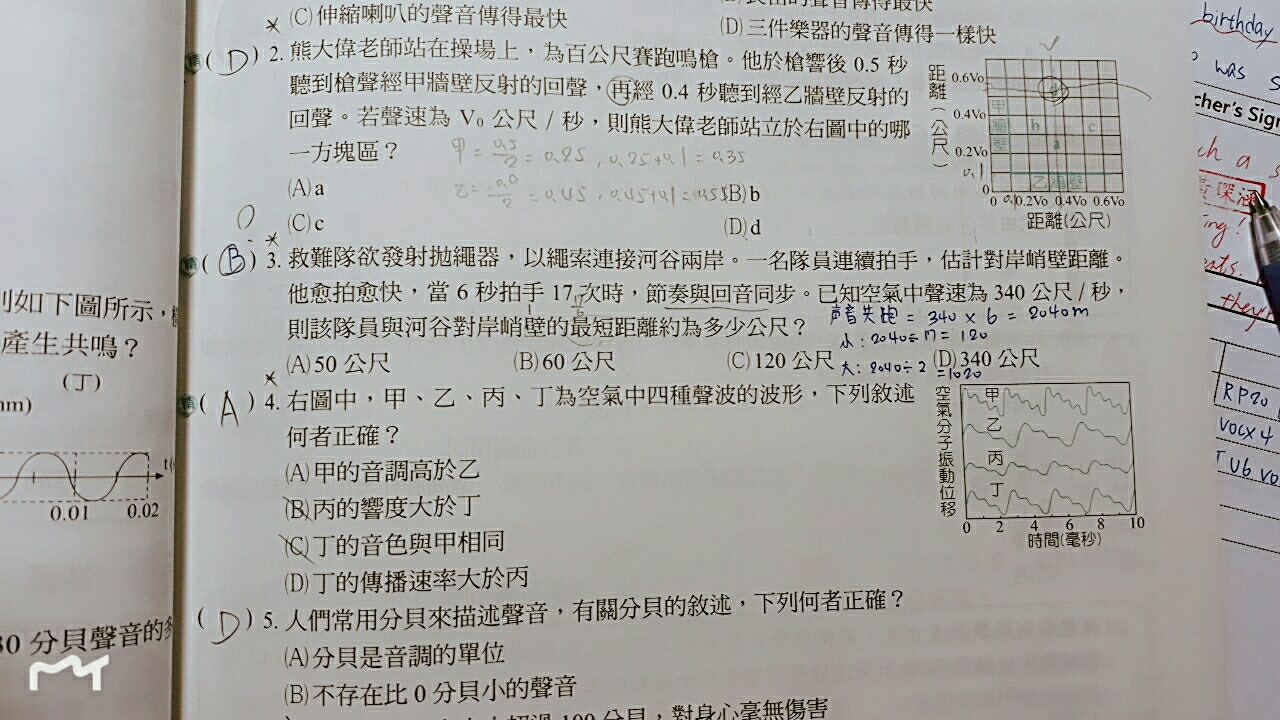 (C)伸縮喇叭的聲音傳得最快
(D)三件樂器的聲音傳得一樣快
(D) 2. 熊大偉老師站在操場上，為百公尺賽跑鳴槍。他於槍響後 0.5 秒
聽到槍聲經甲牆壁反射的回聲，再經 0.4 秒聽到經乙牆壁反射的
回聲。若聲速為 V₀ 公尺／秒，則熊大偉老師站立於右圖中的哪
一方塊區？
甲 = 0.5/2 = 0.25, 0.25+0.1 = 0.35
(A) a
(B) b
(C) c
(D) d
距離(公尺)
0.6V₀
0.4V₀
0.2V₀
0.1
0
甲牆壁
b
c
a
乙牆壁
0 0.1 0.2V₀ 0.4V₀ 0.6V₀
距離(公尺)
(B) 3. 救難隊欲發射拋繩器，以繩索連接河谷兩岸。一名隊員連續拍手，估計對岸峭壁距離。
他愈拍愈快，當 6 秒拍手 17 次時，節奏與回音同步。已知空氣中聲速為 340 公尺／秒，
則該隊員與河谷對岸峭壁的最短距離約為多少公尺？
= 340 × 6 = 2040m
小：2040÷17=120
大：2040÷2
=1020
(A) 50 公尺
(B) 60 公尺
(C) 120 公尺
(D) 340 公尺
(A) 4. 右圖中，甲、乙、丙、丁為空氣中四種聲波的波形，下列敘述
何者正確？
(A)甲的音調高於乙
(B)丙的響度大於丁
(C)丁的音色與甲相同
(D)丁的傳播速率大於丙
空氣分子振動位移
甲
乙
丙
丁
0 2 4 6 8 10
時間(毫秒)
(D) 5. 人們常用分貝來描述聲音，有關分貝的敘述，下列何者正確？
(A)分貝是音調的單位
(B)不存在比 0 分貝小的聲音
超過 100 分貝，對身心毫無傷害
如下圖所示，
產生共鳴？
(丁)
0.01
0.02
分貝聲音的
birthday
was
cher's Sign
ch a
ing!
RP20
vocx4